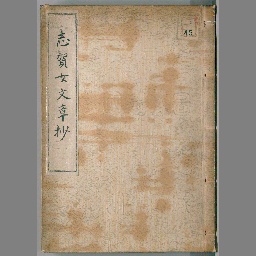 志賀女文章抄
45